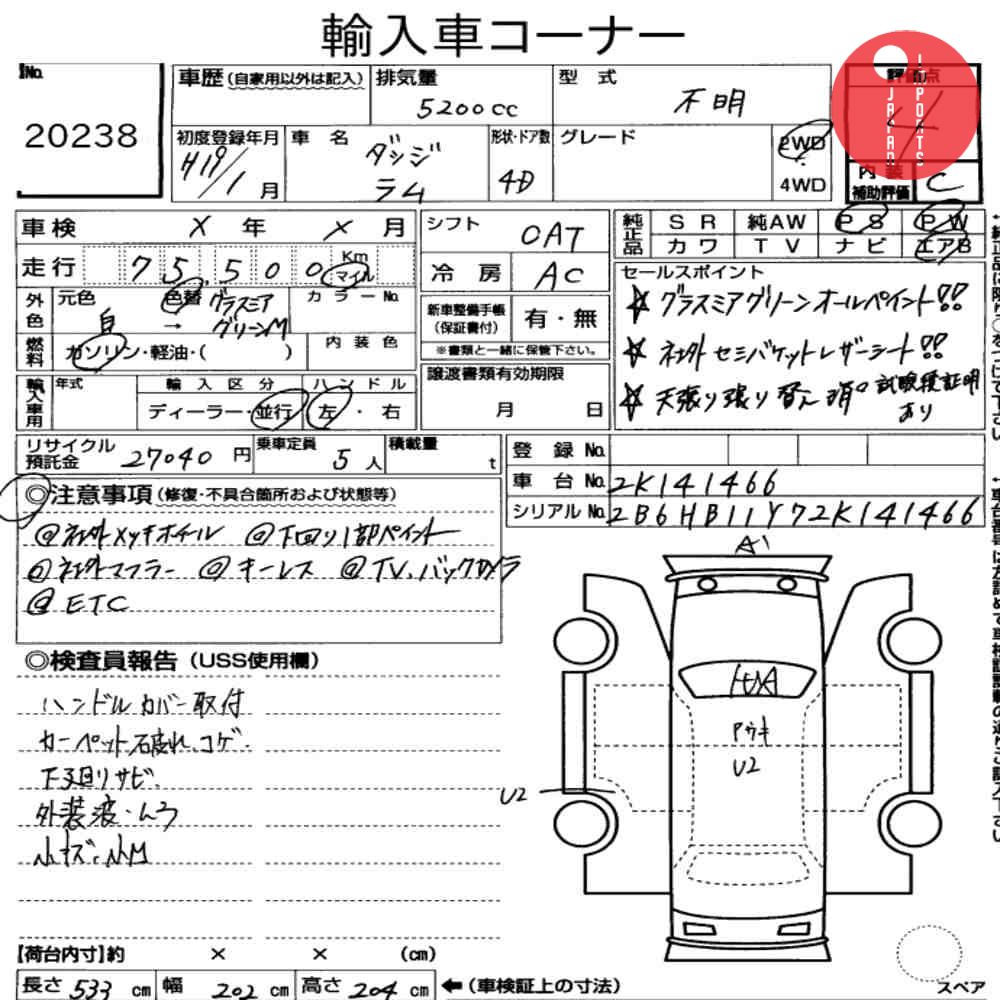 輸入車コーナー
No.
20238
車歴(自家用以外は記入)
排気量
5200cc
型 式
不明
評価点
4
JAPAN IMPORTS
初度登録年月
H19/1月
車 名
ダッジ
ラム
形状・ドア数
4D
グレード
2WD
・
4WD
内 装
補助評価
C
車検 X 年 X 月
シフト
OAT
純正品
SR 純AW PS PW
カワ TV ナビ エアB
走行 75500 Km
マイル
冷 房 AC
セールスポイント
☆グラスミアグリーンオールペイント!!
☆社外セミバケットレザーシート!!
☆天張り張り替え済 試験検証明
あり
外色
元色
白 →
色替 グラスミア
グリーンM
カラーNo.
新車整備手帳
(保証書付)
有・無
※書類と一緒に保管下さい。
燃料
ガソリン・軽油・( )
内 装 色
譲渡書類有効期限
月 日
輸入車用
年式
輸 入 区 分
ディーラー・並行
ハ ン ド ル
左 ・ 右
リサイクル
預託金 27040 円
乗車定員
5 人
積載量
t
登 録 No.
車 台 No. 2K141466
シリアル No. 2B6HB11Y72K141466
◎注意事項(修復・不具合箇所および状態等)
@社外メッキホイール @下回り1部ペイント
@社外マフラー @キーレス @TV、バックカメラ
@ETC
◎検査員報告(USS使用欄)
ハンドルカバー取付
カーペット破れ、コゲ.
下回りサビ.
小キズ、小M
A1
Pウキ
U2
U2
【荷台内寸】約 × × (cm)
長さ 533 cm 幅 202 cm 高さ 204 cm ←(車検証上の寸法)
スペア